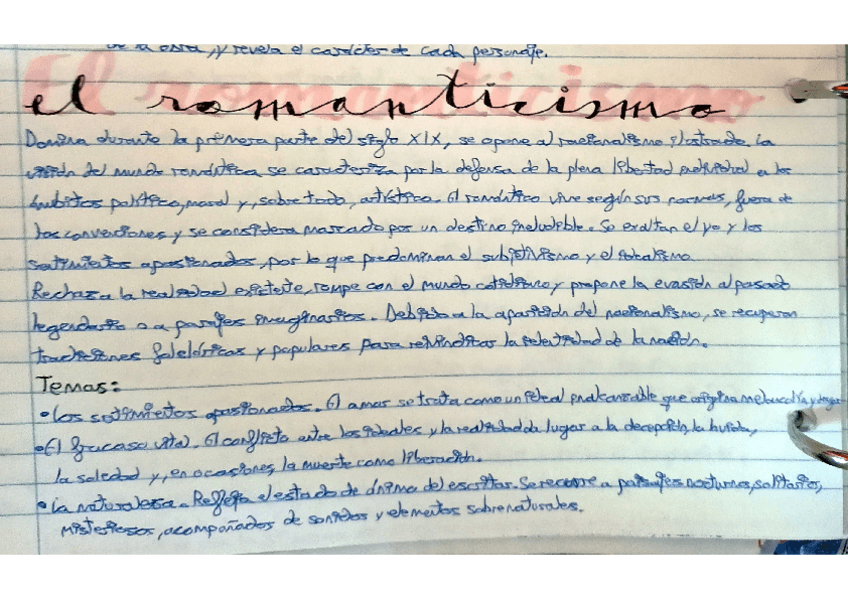 de la obra, y revela el carácter de cada personaje.
el romanticismo
Domina durante la primera parte del siglo XIX, se opone al racionalismo ilustrado. La
visión del mundo romántica se caracteriza por la defensa de la plena libertad individual en los
ámbitos político, moral y, sobre todo, artístico. El romántico vive según sus normas, fuera de
las convenciones y se considera marcado por un destino ineludible. Se exaltan el yo y los
sentimientos apasionados, por lo que predominan el subjetivismo y el idealismo
Rechaza la realidad existente, rompe con el mundo cotidiano y propone la evasión al pasado
legendario o a parajes imaginarios. Debido a la aparición del nacionalismo, se recuperan
tradiciones folclóricas y populares para reivindicar la identidad de la nación.
Temas:
• Los sentimientos apasionados. El amor se trata como un ideal inalcanzable que origina melancolía y
• El fracaso vital. El conflicto entre los ideales y la realidad da lugar a la decepción, la huida,
la soledad y, en ocasiones, la muerte como liberación.
• La naturaleza. Refleja el estado de ánimo del escritor. Se recurre a paisajes nocturnos, solitarios,
misteriosos, acompañados de sonidos y elementos sobrenaturales.